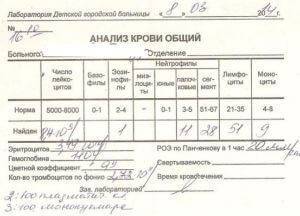 Лаборатория Детской городской больницы « 8 » 03
16 10
АНАЛИЗ КРОВИ ОБЩИЙ
Больного Отделение
Число лейкоцитов Базофилы Эозинофилы миэлоциты Нейтрофилы юные палочковые сегмент Лимфоциты Моноциты
Норма 5000-8000 0-1 2-4 - 0-1 3-5 51-67 21-35 4-8
Найден 84·10³ 1 11 28 51 9
Эритроцитов
Гемоглобина 110
Цветной коэффициент
Кол-во тромбоцитов по фонио
РОЭ по Панченкову в 1 час 20 мм/
Свертываемость
Время кровотечения
Зав. лабораторией
2:100 плазмат. кл
3:100 мононуклеаре